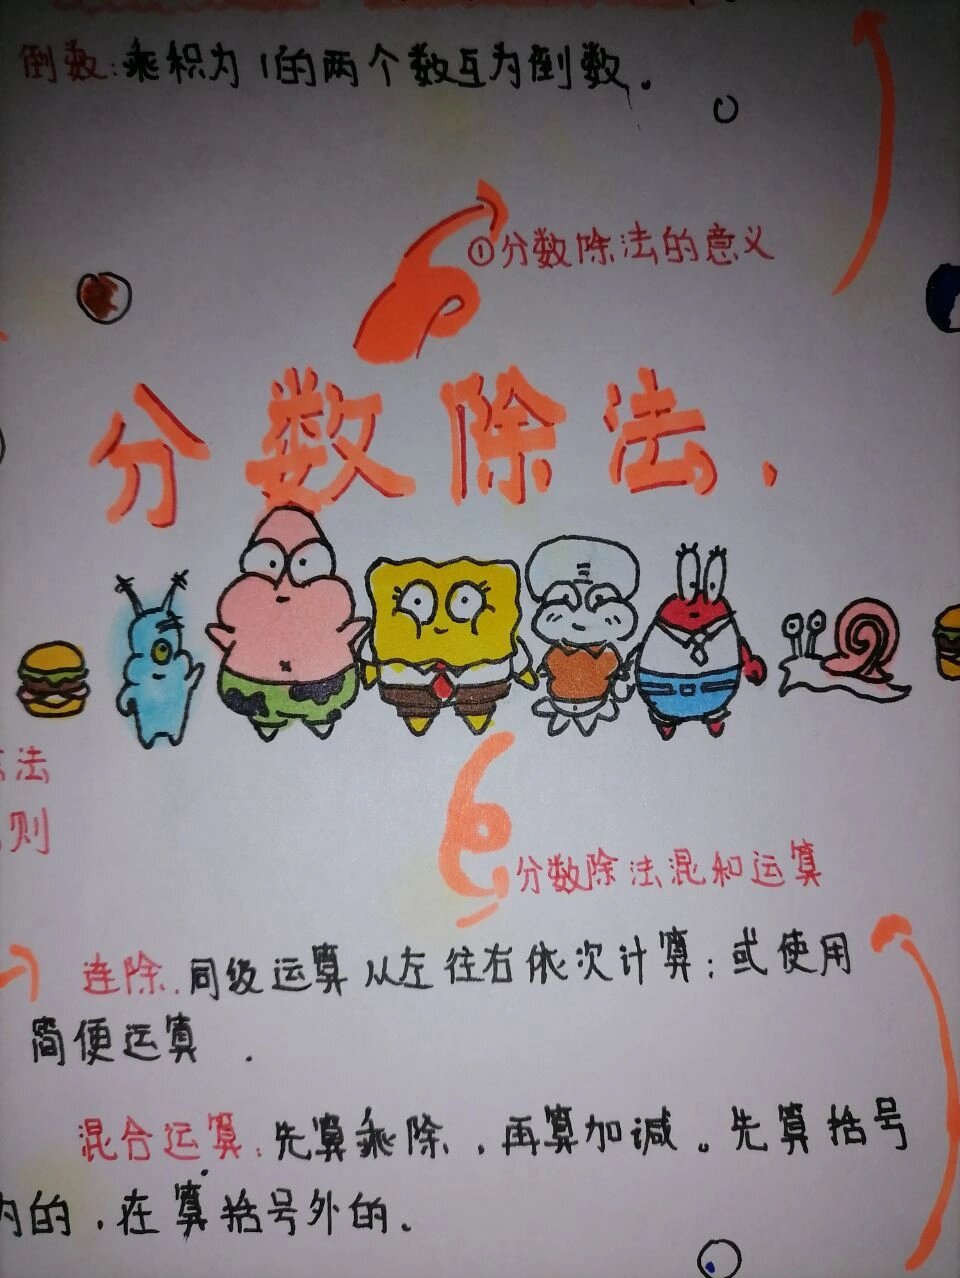 倒数：乘积为1的两个数互为倒数。
①分数除法的意义
分数除法
法
则
分数除法混和运算
连除.同级运算从左往右依次计算；或使用
简便运算.
混合运算：先算乘除，再算加减。先算括号
内的，在算括号外的。